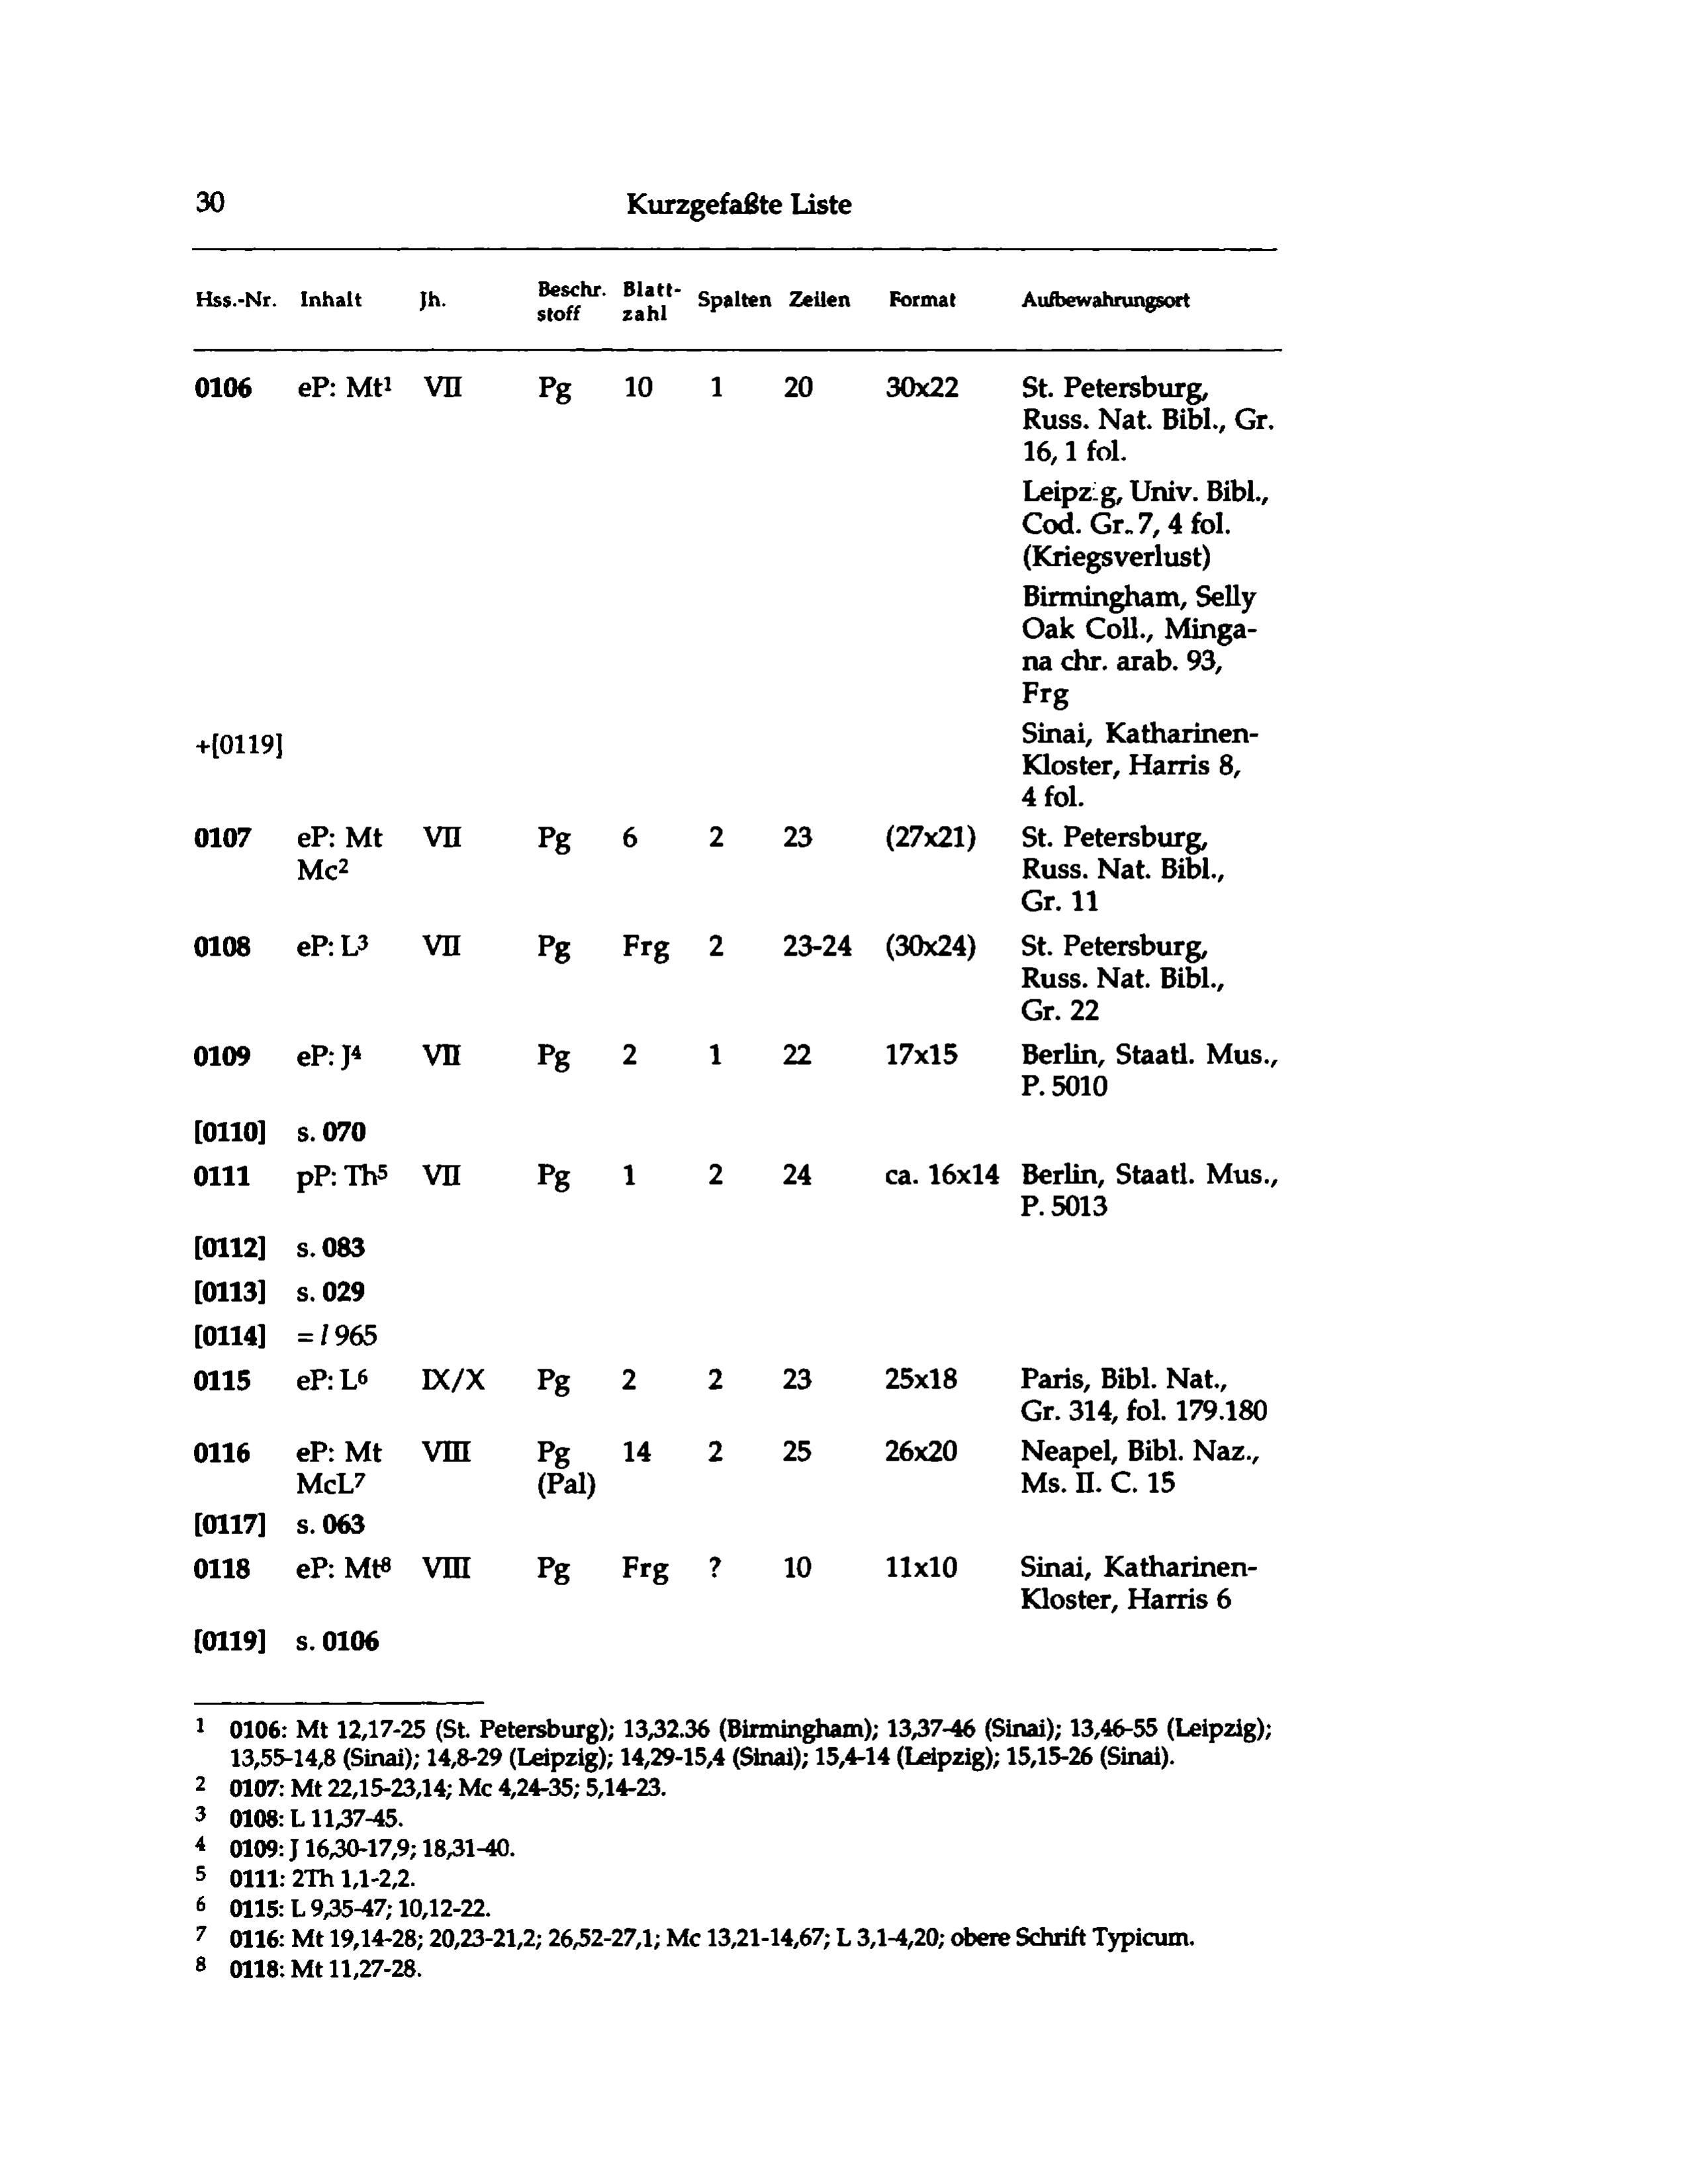 30 Kurzgefaßte Liste
Hss.-Nr. Inhalt Jh. Beschr. stoff Blatt- zahl Spalten Zeilen Format Aufbewahrungsort
0106 eP: Mt¹ VII Pg 10 1 20 30x22 St. Petersburg,
Russ. Nat. Bibl., Gr.
16, 1 fol.
Leipzig, Univ. Bibl.,
Cod. Gr. 7, 4 fol.
(Kriegsverlust)
Birmingham, Selly
Oak Coll., Minga-
na chr. arab. 93,
Frg
+[0119] Sinai, Katharinen-
Kloster, Harris 8,
4 fol.
0107 eP: Mt VII Pg 6 2 23 (27x21) St. Petersburg,
Mc² Russ. Nat. Bibl.,
Gr. 11
0108 eP: L³ VII Pg Frg 2 23-24 (30x24) St. Petersburg,
Russ. Nat. Bibl.,
Gr. 22
0109 eP: J⁴ VII Pg 2 1 22 17x15 Berlin, Staatl. Mus.,
P. 5010
[0110] s. 070
0111 pP: Th⁵ VII Pg 1 2 24 ca. 16x14 Berlin, Staatl. Mus.,
P. 5013
[0112] s. 083
[0113] s. 029
[0114] = l 965
0115 eP: L⁶ IX/X Pg 2 2 23 25x18 Paris, Bibl. Nat.,
Gr. 314, fol. 179.180
0116 eP: Mt VIII Pg 14 2 25 26x20 Neapel, Bibl. Naz.,
McL⁷ (Pal) Ms. II. C. 15
[0117] s. 063
0118 eP: Mt⁸ VIII Pg Frg ? 10 11x10 Sinai, Katharinen-
Kloster, Harris 6
[0119] s. 0106
1 0106: Mt 12,17-25 (St. Petersburg); 13,32.36 (Birmingham); 13,37-46 (Sinai); 13,46-55 (Leipzig);
13,55-14,8 (Sinai); 14,8-29 (Leipzig); 14,29-15,4 (Sinai); 15,4-14 (Leipzig); 15,15-26 (Sinai).
2 0107: Mt 22,15-23,14; Mc 4,24-35; 5,14-23.
3 0108: L 11,37-45.
4 0109: J 16,30-17,9; 18,31-40.
5 0111: 2Th 1,1-2,2.
6 0115: L 9,35-47; 10,12-22.
7 0116: Mt 19,14-28; 20,23-21,2; 26,52-27,1; Mc 13,21-14,67; L 3,1-4,20; obere Schrift Typicum.
8 0118: Mt 11,27-28.